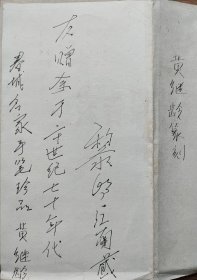 黄继龄篆刻
江南藏
友赠余于本世纪七十年代
春城名家手笔珍品 黄继龄